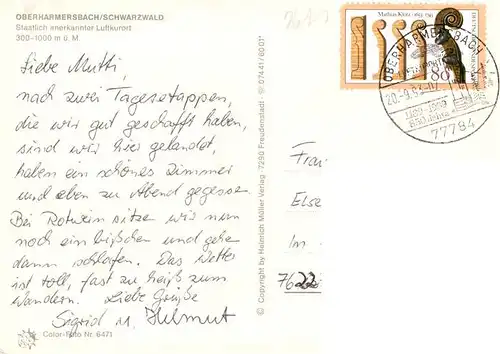 OBERHARMERSBACH/SCHWARZWALD
Staatlich anerkannter Luftkurort
300-1000 m ü. M.
Liebe Mutti,
nach zwei Tagesetappen,
die wir gut geschafft haben,
sind wir hier gelandet,
haben ein schönes Zimmer
und eben zu Abend gegessen.
Bei Rotwein sitze wir nun
noch ein bißchen und gehe
dann schlafen. Das Wetter
ist toll, fast zu heiß zum
Wandern. Liebe Grüße
Sigrid u. Helmut
Color-Foto Nr. 6471
© Copyright by Heinrich Müller Verlag 7290 Freudenstadt
Mathias Klotz · 1653-1743
80
OBERHARMERSBACH
77784
Frau
Else
Im